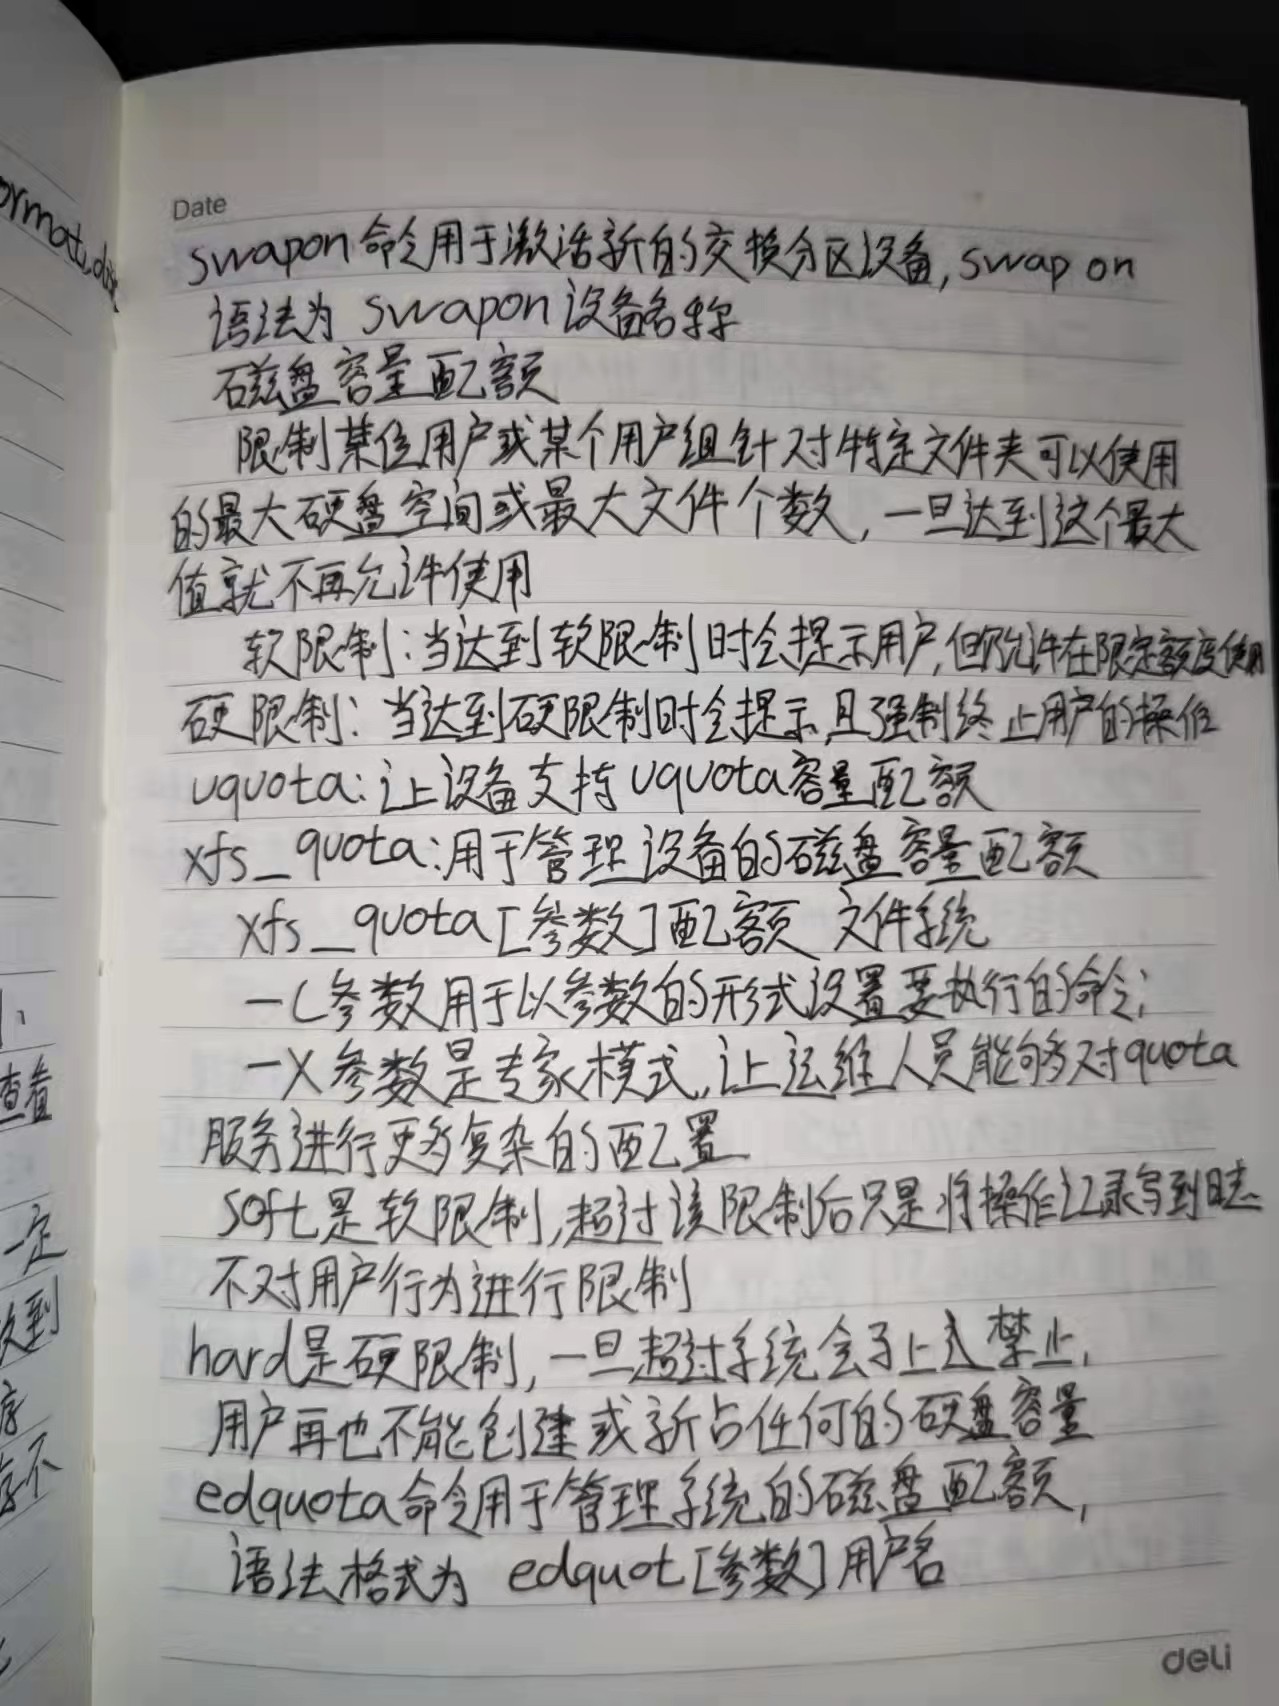 ormat,dis
Date
swapon命令用于激活新的交换分区设备,swap on
语法为 swapon设备名称
磁盘容量配额
限制某位用户或某个用户组针对特定文件夹可以使用
的最大硬盘空间或最大文件个数,一旦达到这个最大
值就不再允许使用
软限制:当达到软限制时会提示用户,但仍允许在限定额度使用
硬限制:当达到硬限制时会提示,且强制终止用户的操作
uquota:让设备支持uquota容量配额
xfs_quota:用于管理设备的磁盘容量配额
xfs_quota[参数]配额 文件系统
-c参数用于以参数的形式设置要执行的命令;
-x参数是专家模式,让运维人员能够对quota
服务进行更多复杂的配置
soft是软限制,超过该限制后只是将操作记录写到日志
不对用户行为进行限制
hard是硬限制,一旦超过系统会马上禁止,
用户再也不能创建或新占任何的硬盘容量
edquota命令用于管理系统的磁盘配额,
语法格式为 edquot[参数]用户名
deli
查看
一定
到
序
不